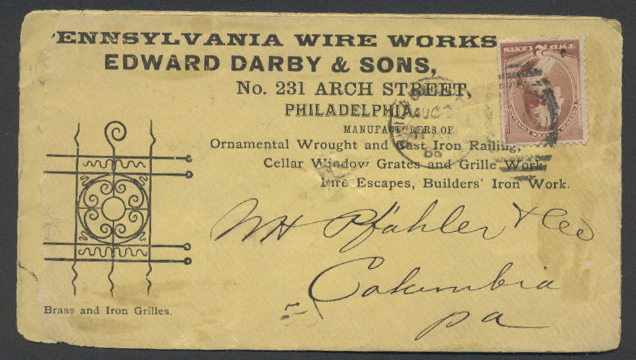 ENNSYLVANIA WIRE WORKS
EDWARD DARBY & SONS,
No. 231 ARCH STREET,
PHILADELPHIA.
MANUFACTURERS OF
Ornamental Wrought and Cast Iron Railing,
Cellar Window Grates and Grille Work
Fire Escapes, Builders' Iron Work.
WH Pfahler & Co
Columbia
pa
Brass and Iron Grilles.
TWO 2 CENTS
AUG